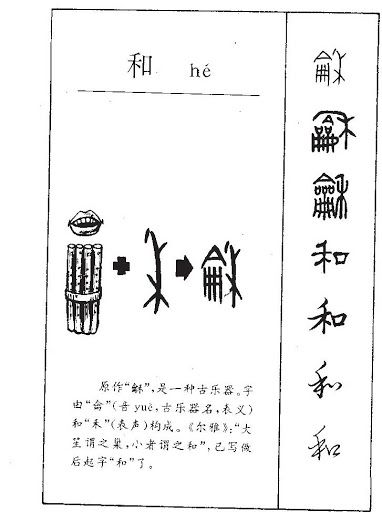 和 hé
原作“龢”,是一种古乐器。字
由“龠”(音 yuè,古乐器名,表义)
和“禾”(表声)构成。《尔雅》:“大
笙谓之巢,小者谓之和”,已写做
后起字“和”了。
龢
龢
龢
和
和
和
和